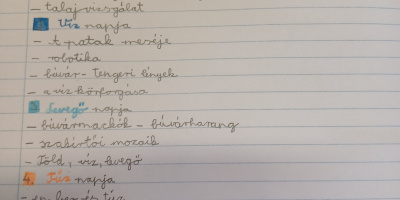 – talajvizsgálat
2. Víz napja
– A patak meséje
– robotika
– búvár - Tengeri lények
– a víz körforgása
3. Levegő napja
– búvármackók - búvárharang
– szabirtói mozaik
– Föld, víz, levegő
4. Tűz napja